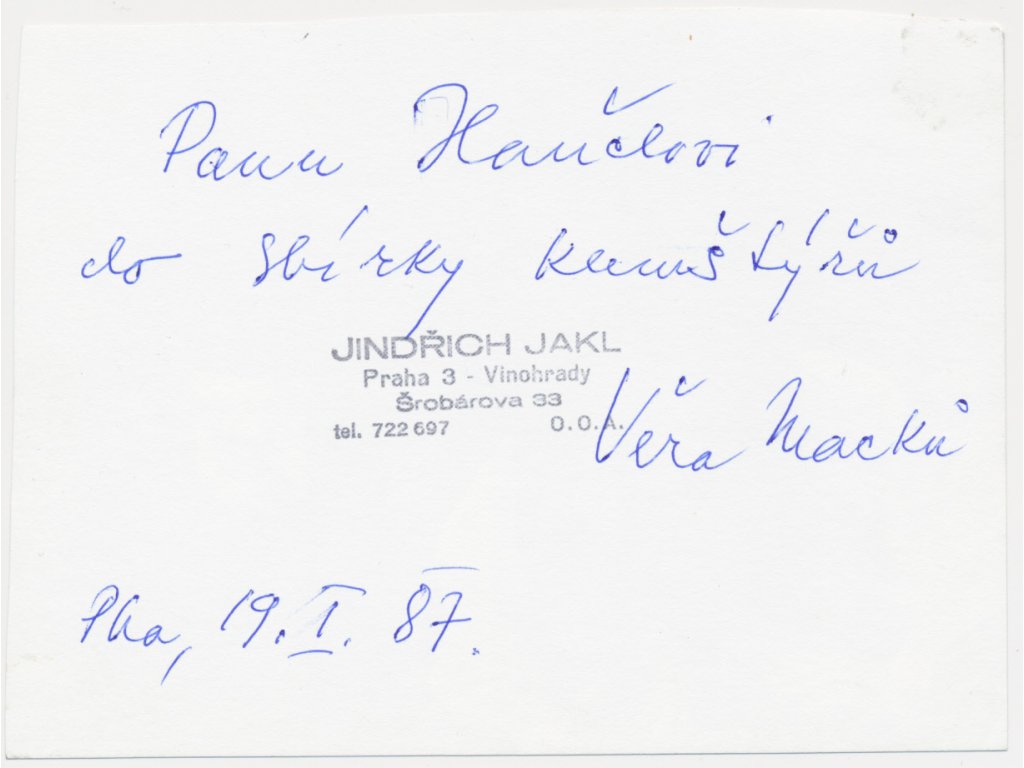 Panu Hančlovi
do sbírky kumštýřů
JINDŘICH JAKL
Praha 3 - Vinohrady
Šrobárova 33
tel. 722 697 O.O.A.
Věra Macků
Pha, 19. I. 87.